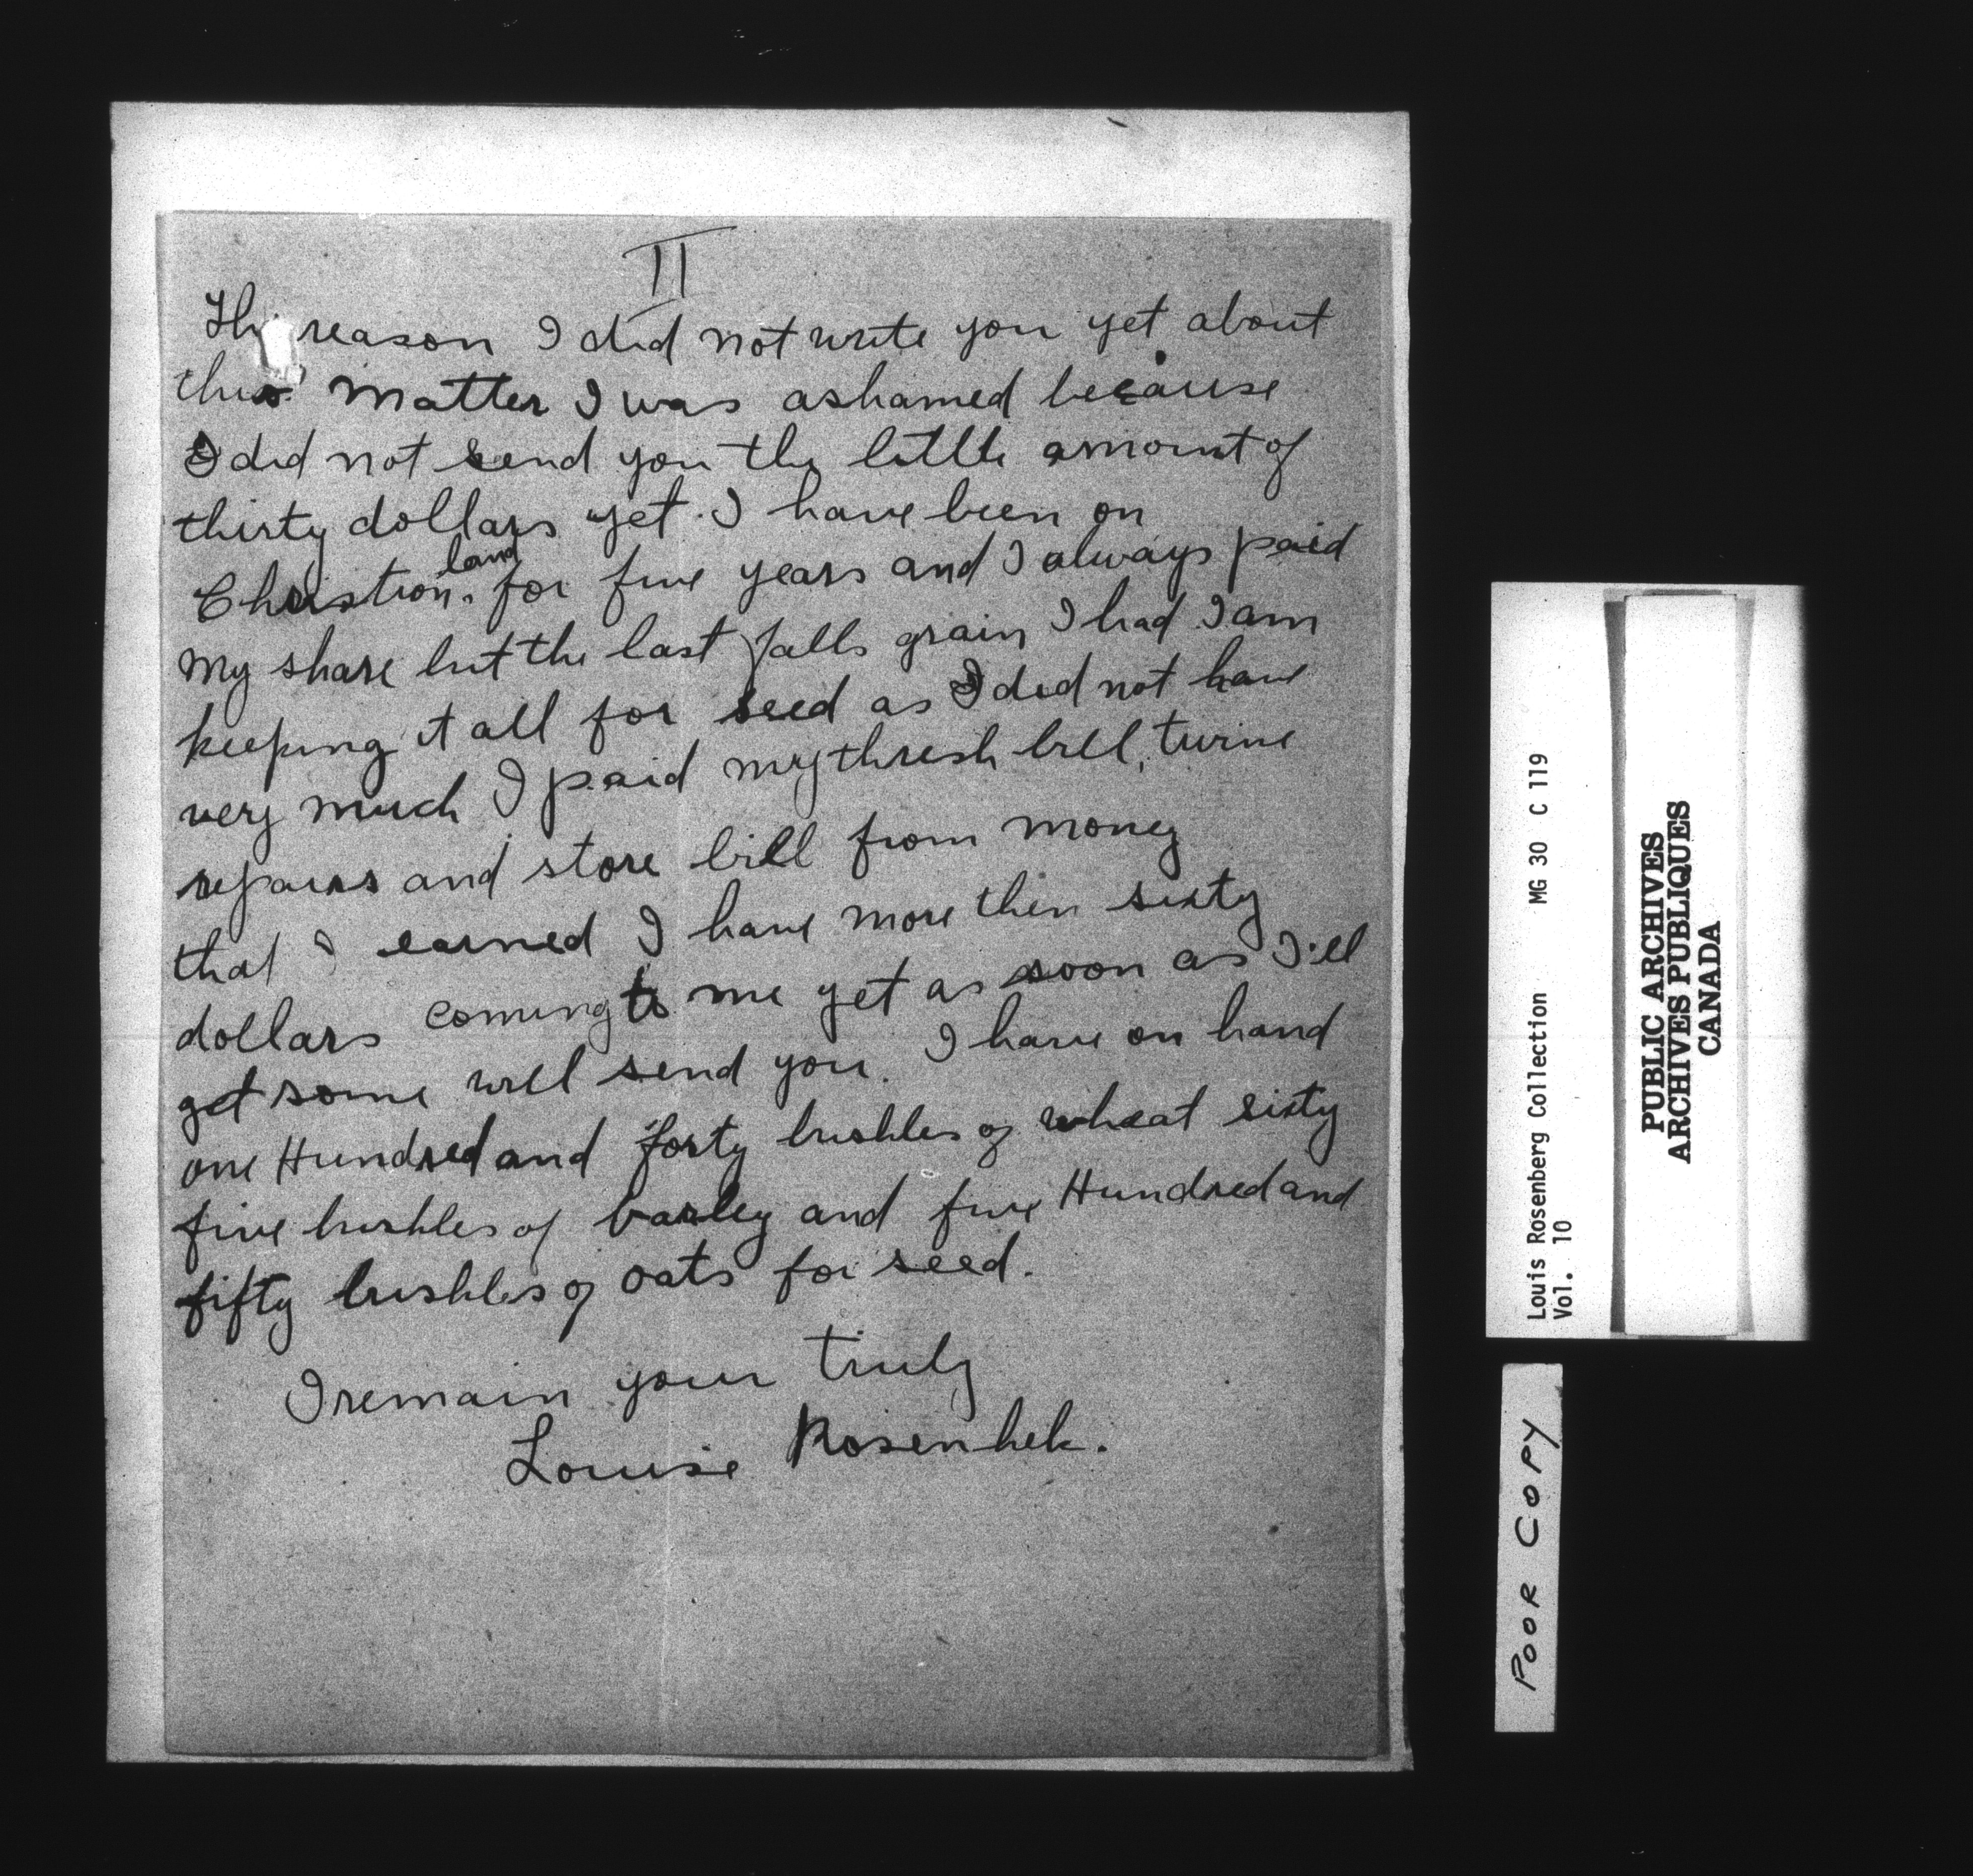 II
The reason I did not write you yet about
this matter I was ashamed because
I did not send you the little amount of
thirty dollars yet. I have been on
Christion land for five years and I always paid
my share but the last falls grain I had I am
keeping it all for seed as I did not have
very much I paid my thresh bill, twine
repairs and store bill from money
that I earned I have more then sixty
dollars coming to me yet as soon as I'll
get some will send you. I have on hand
one Hundred and forty bushles of wheat sixty
five bushles of barley and five Hundred and
fifty bushles of oats for seed.
I remain your truly
Louise Rosenhek.
Louis Rosenberg Collection MG 30 C 119
Vol. 10
PUBLIC ARCHIVES
ARCHIVES PUBLIQUES
CANADA
POOR COPY